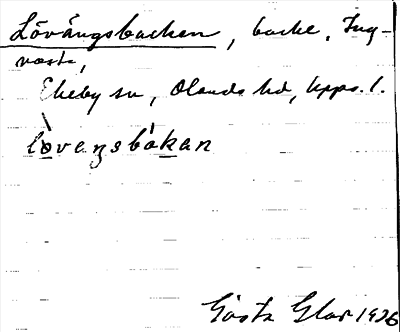 Lövängsbacken, backe, Ing-
vasta,
Ekeby sn, Olands hd, Upps. l.
lövaŋsbakan
Gösta Glar 1926